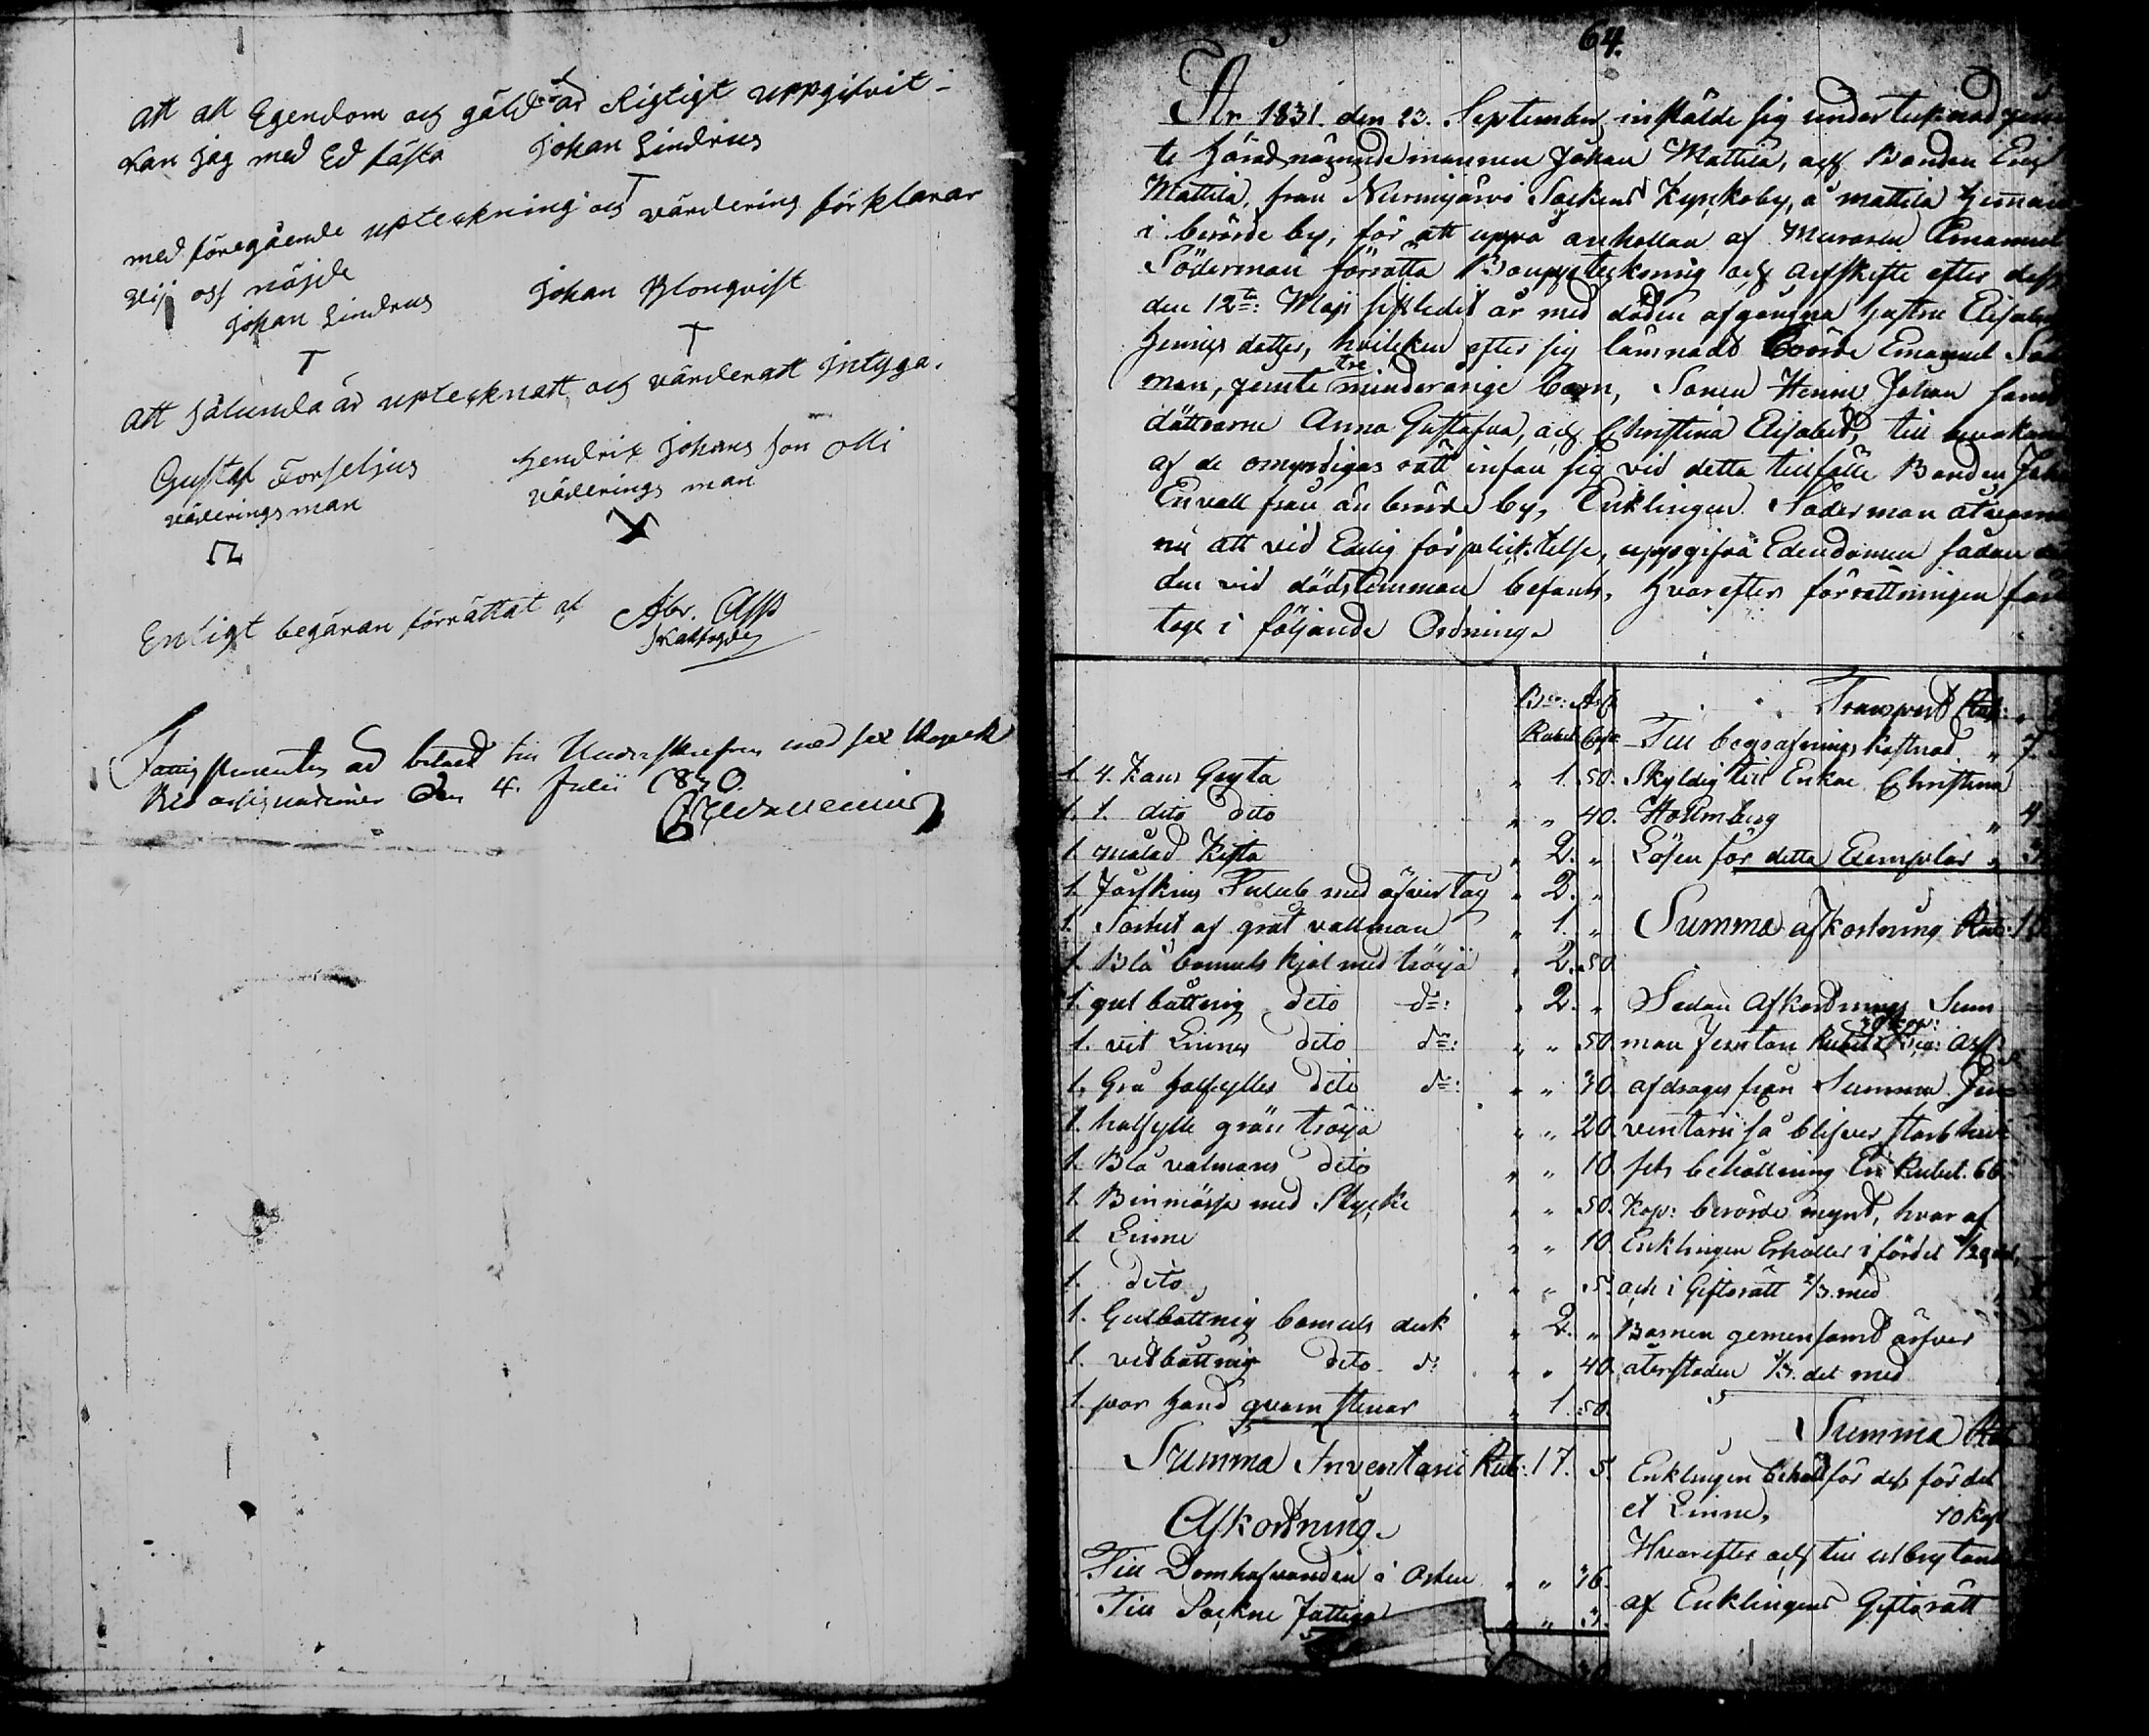 att all Egendom och gäld är Rigtigt uppgifvit
kan jag med Ed fästa Johan Lindrus
med föregående upteckning och värdering förklarar
vij oss nöjde
Johan Lindrus Johan Blonqvist
att sålunda är uptecknatt och värderatt Intyga.
Gustaf Forseljus Hendrik Johans son Olli
väderings man väderings man
Enligt begäran förrättat af Abr. Asp
den 4. Julii 1830.
64.
År 1831. den 23. September, instälde sig undertecknad
te häradsnämndemannen Johan Mattila, och Bonden Eric
Mattila, från Nurmijärvi Sockens Kyrckoby, å mattila heman
i berörde by, för att uppå anhollan af Muraren Emanuel
Söderman förrätta Bouppteckning och arfskifte efter dess
den 12te: Maji sistledit år med döden afgångna hustru Elisabet
Henrics dotter, hvilcken efter sig lämnadt berörde Emanuel Söder
man, jemte tre minderårige barn, Sonen Henric Johan samt
döttrarne Anna Gustafva, och Christina Elisabet, till bevakande
af de omyndigas rätt infan sig vid detta tillfälle Bonden Joha
Envall från än berörde by, Enklingen Söderman
nu att vid Edelig förplicktelse, uppgifva Edendomen sådan
den vid dödstimman befants, hvarefter förrättningen
togs i följande Ordning.
B:co: Ass:
Rubel Cop:
1. 4. Kans Gryta " 1. 50.
1. 1. dito dito " " 40.
1. målad Kista " 2. "
1. Fårskins med öfvertag " 2. "
1. af gråt vallman " 1. "
1. Blå bomuls kjol med tröija " 2. 50
1. gul båttnig dito do: " 2. "
1. vit Linnes dito do: " " 50.
1. Grå halfylles dito do: " " 30.
1. halfylle grön tröija " " 20.
1. Blå valmans dito " " 10.
1. Binmössa med Stycke " " 50.
1. Linne " " 10
1. dito " " 5.
1. Gulbåttnig bomuls duk " 2. "
1. vidbåttnig dito do: " " 40.
1. par hand qvarn stenar " 1. 50
Summa Inventarii Rub: 17. 5.
Afkortning.
Till Domhafvanden å Orten " " 36.
Till Sockne fattiga " " 3.
Transport Rub:
Till begrafnings kostnad " 7.
Skyldig till Enkan Christina
Hollmberg " 4.
Lösen för detta Exemplar " 3.
Summa afkortning Rub: 15
Sedan Afkortnings Sum
man femton Rubel
afdrages från Summa In
ventarii så blifver
behållning En Rubel. 66
Kop: berörde mynt, hvar af
Enklingen Erhåller i fördel 1/20 del,
och i Giftorätt 2/3. med
Barnen gemensamt ärfver
återstoden 1/3. del med
Summa Rub
Enklingen behåll för dess fördel
et Linne, 10 kop
Hvarefter och till utbrytande
af Enklingens Giftorätt